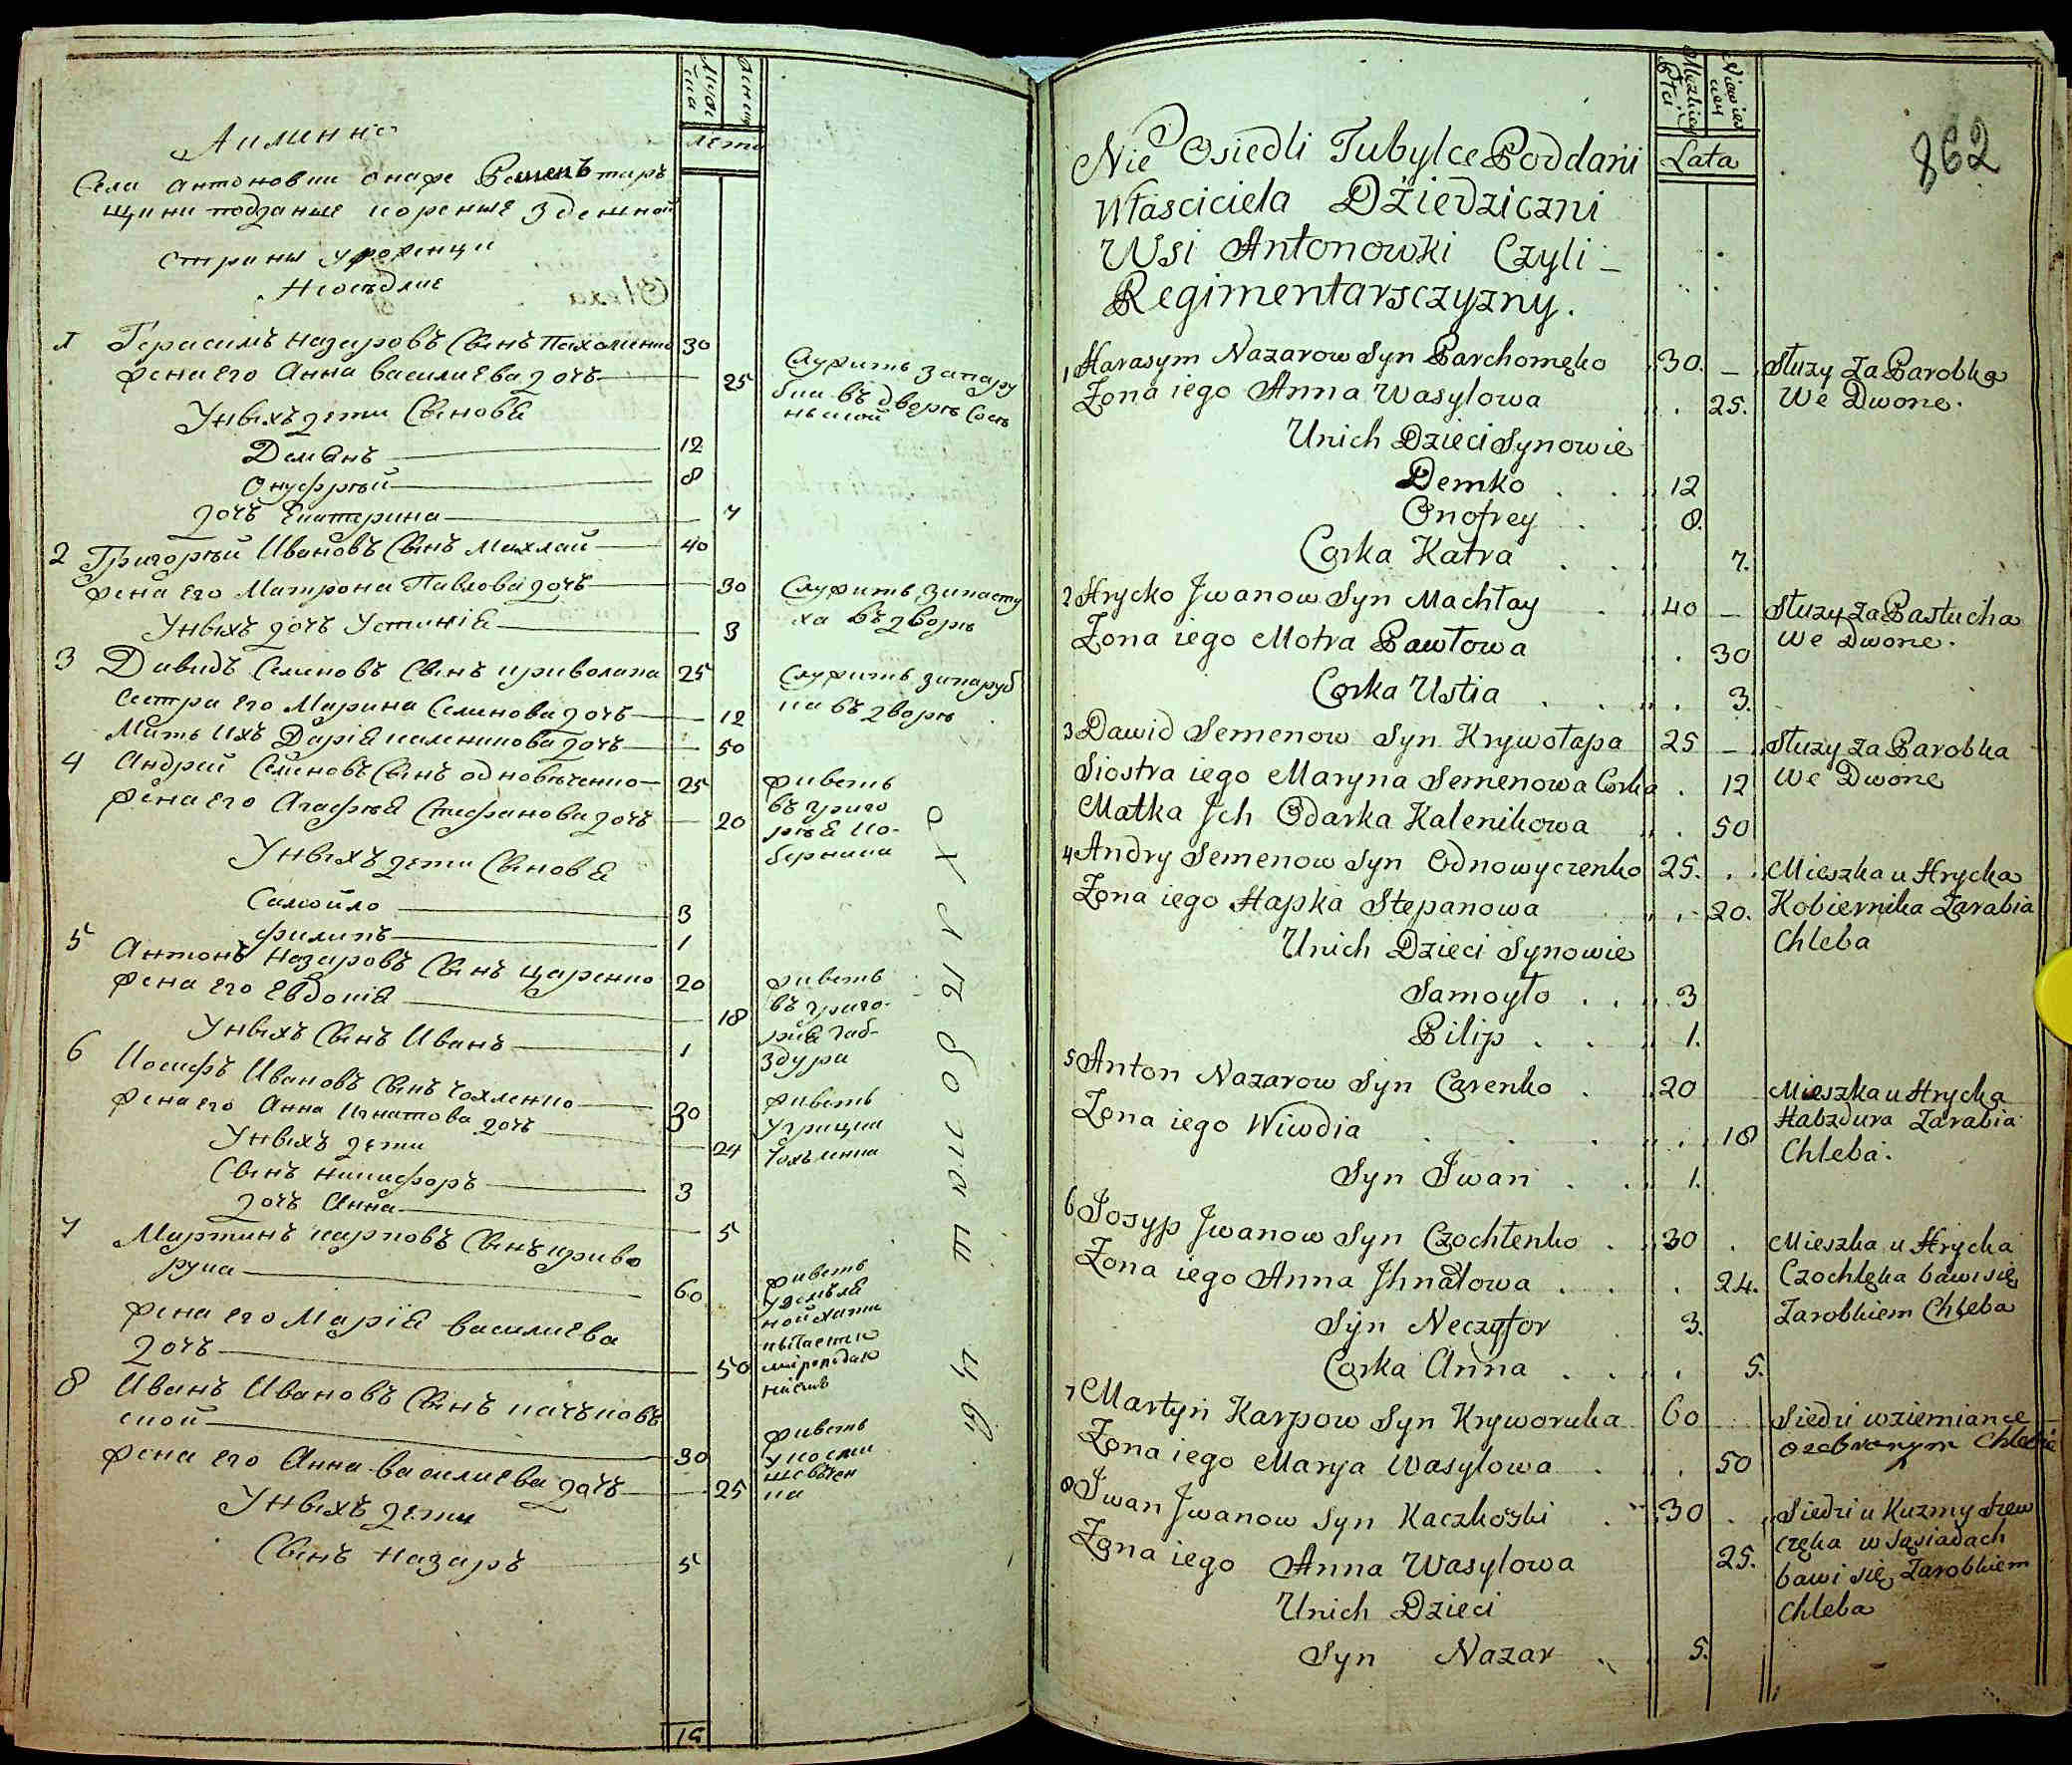 Мужеска
Женска
лета
Аименно
Села антоновки онаже Рементар
щини подданые корение здешной
страны уроженци
Неоседлие
1 Герасимъ назаровъ Сынъ Пахоменко 30
жена его Анна василиева дочь 25
Служитъ запару
бка въ дворѣ
Унихъ дети Сынова
Демянъ 12
Онуфрѣй 8
дочь Екатерина 7
2 Григорѣй Ивановъ Сынъ Махлай 40
жена его Матрона Павлова дочь 30
Служитъ запасту
ха въ дворѣ
Унихъ дочь Устинія 3
3 Давидъ Семеновъ Сынъ криволапа 25
Служитъ запаруб
ка въ дворѣ
Сестра его Марина Семинова дочь 12
Мать Ихъ Дарія каленикова дочь 50
4 Андрей Семиновъ Сынъ одновѣченко 25
жена его Агафія Стефанова дочь 20
живетъ
въ григо
рѣя ко-
берника
Унихъ дети Сыновя
Самойло 3
Филипъ 1
5 Антонъ Назаровъ Сынъ царенко 20
жена его Евдокія 18
живетъ
въ григо-
рія габ-
здура
Унихъ Сынъ Иванъ 1
6 Иосифъ Ивановъ Сынъ чохленко 30
жена его Анна Игнатова дочь 24
живетъ
угрицка
Чохленка
Унихъ дети
Сынъ никифоръ 3
дочь Анна 5
7 Мартинъ карповъ Сынъ криво
рука 60
жена его Марія василиева
дочь 50
живетъ
8 Иванъ Ивановъ Сынъ качковъ
ской 30
жена его Анна василиева дочь 25
живетъ
Унихъ дети
Сынъ назаръ 5
15
862
Lata
Nie Osiedli Tubylce Poddani
Właściciela Dziedziczni
Wsi Antonowki Czyli
Regimentarsczyzny.
1 Harasym Nazarow Syn Parchomęko 30. – Służy za Parobka
Zona iego Anna Wasylowa 25. We Dworze.
Unich Dzieci Synowie
Demko 12
Onofrey 8.
Corka Katra 7.
2 Hrycko Jwanow Syn Machłay 40 – Służy za Pastucha
Zona iego Motra Pawłowa 30 We Dworze.
Corka Ustia 3.
3 Dawid Semenow Syn Krywołapa 25 – Służy za Parobka
Siostra iego Maryna Semenowa Corka 12 We Dworze
Matka Jch Odarka Kalenikowa 50
4 Andry Semenow Syn Odnowyczenko 25. Mieszka u Hrycka
Zona iego Hapka Stepanowa 20. Kobiernika Zarabia
Unich Dzieci Synowie Chleba
Samoyło 3
Pilip 1.
5 Anton Nazarow Syn Carenko 20 Mieszka u Hrycka
Zona iego Wiwdia 18 Habzdura Zarabia
Chleba.
Syn Jwan 1.
6 Josyp Jwanow Syn Czochłenko 30 Mieszka u Hrycka
Zona iego Anna Jhnatowa 24. Czochlęka bawi się
Syn Neczyfor 3. Zarobkiem Chleba
Corka Anna 5.
7 Martyn Karpow Syn Kryworuka 60 Siedzi wziemiance
Zona iego Marya Wasylowa 50 Chlebie
8 Jwan Jwanow Syn Kaczkoski 30 Siedzi u Kuzmy Szew
Zona iego Anna Wasylowa 25. częka w Sąsiadach
bawi się Zarobkiem
Unich Dzieci Chleba
Syn Nazar 5.